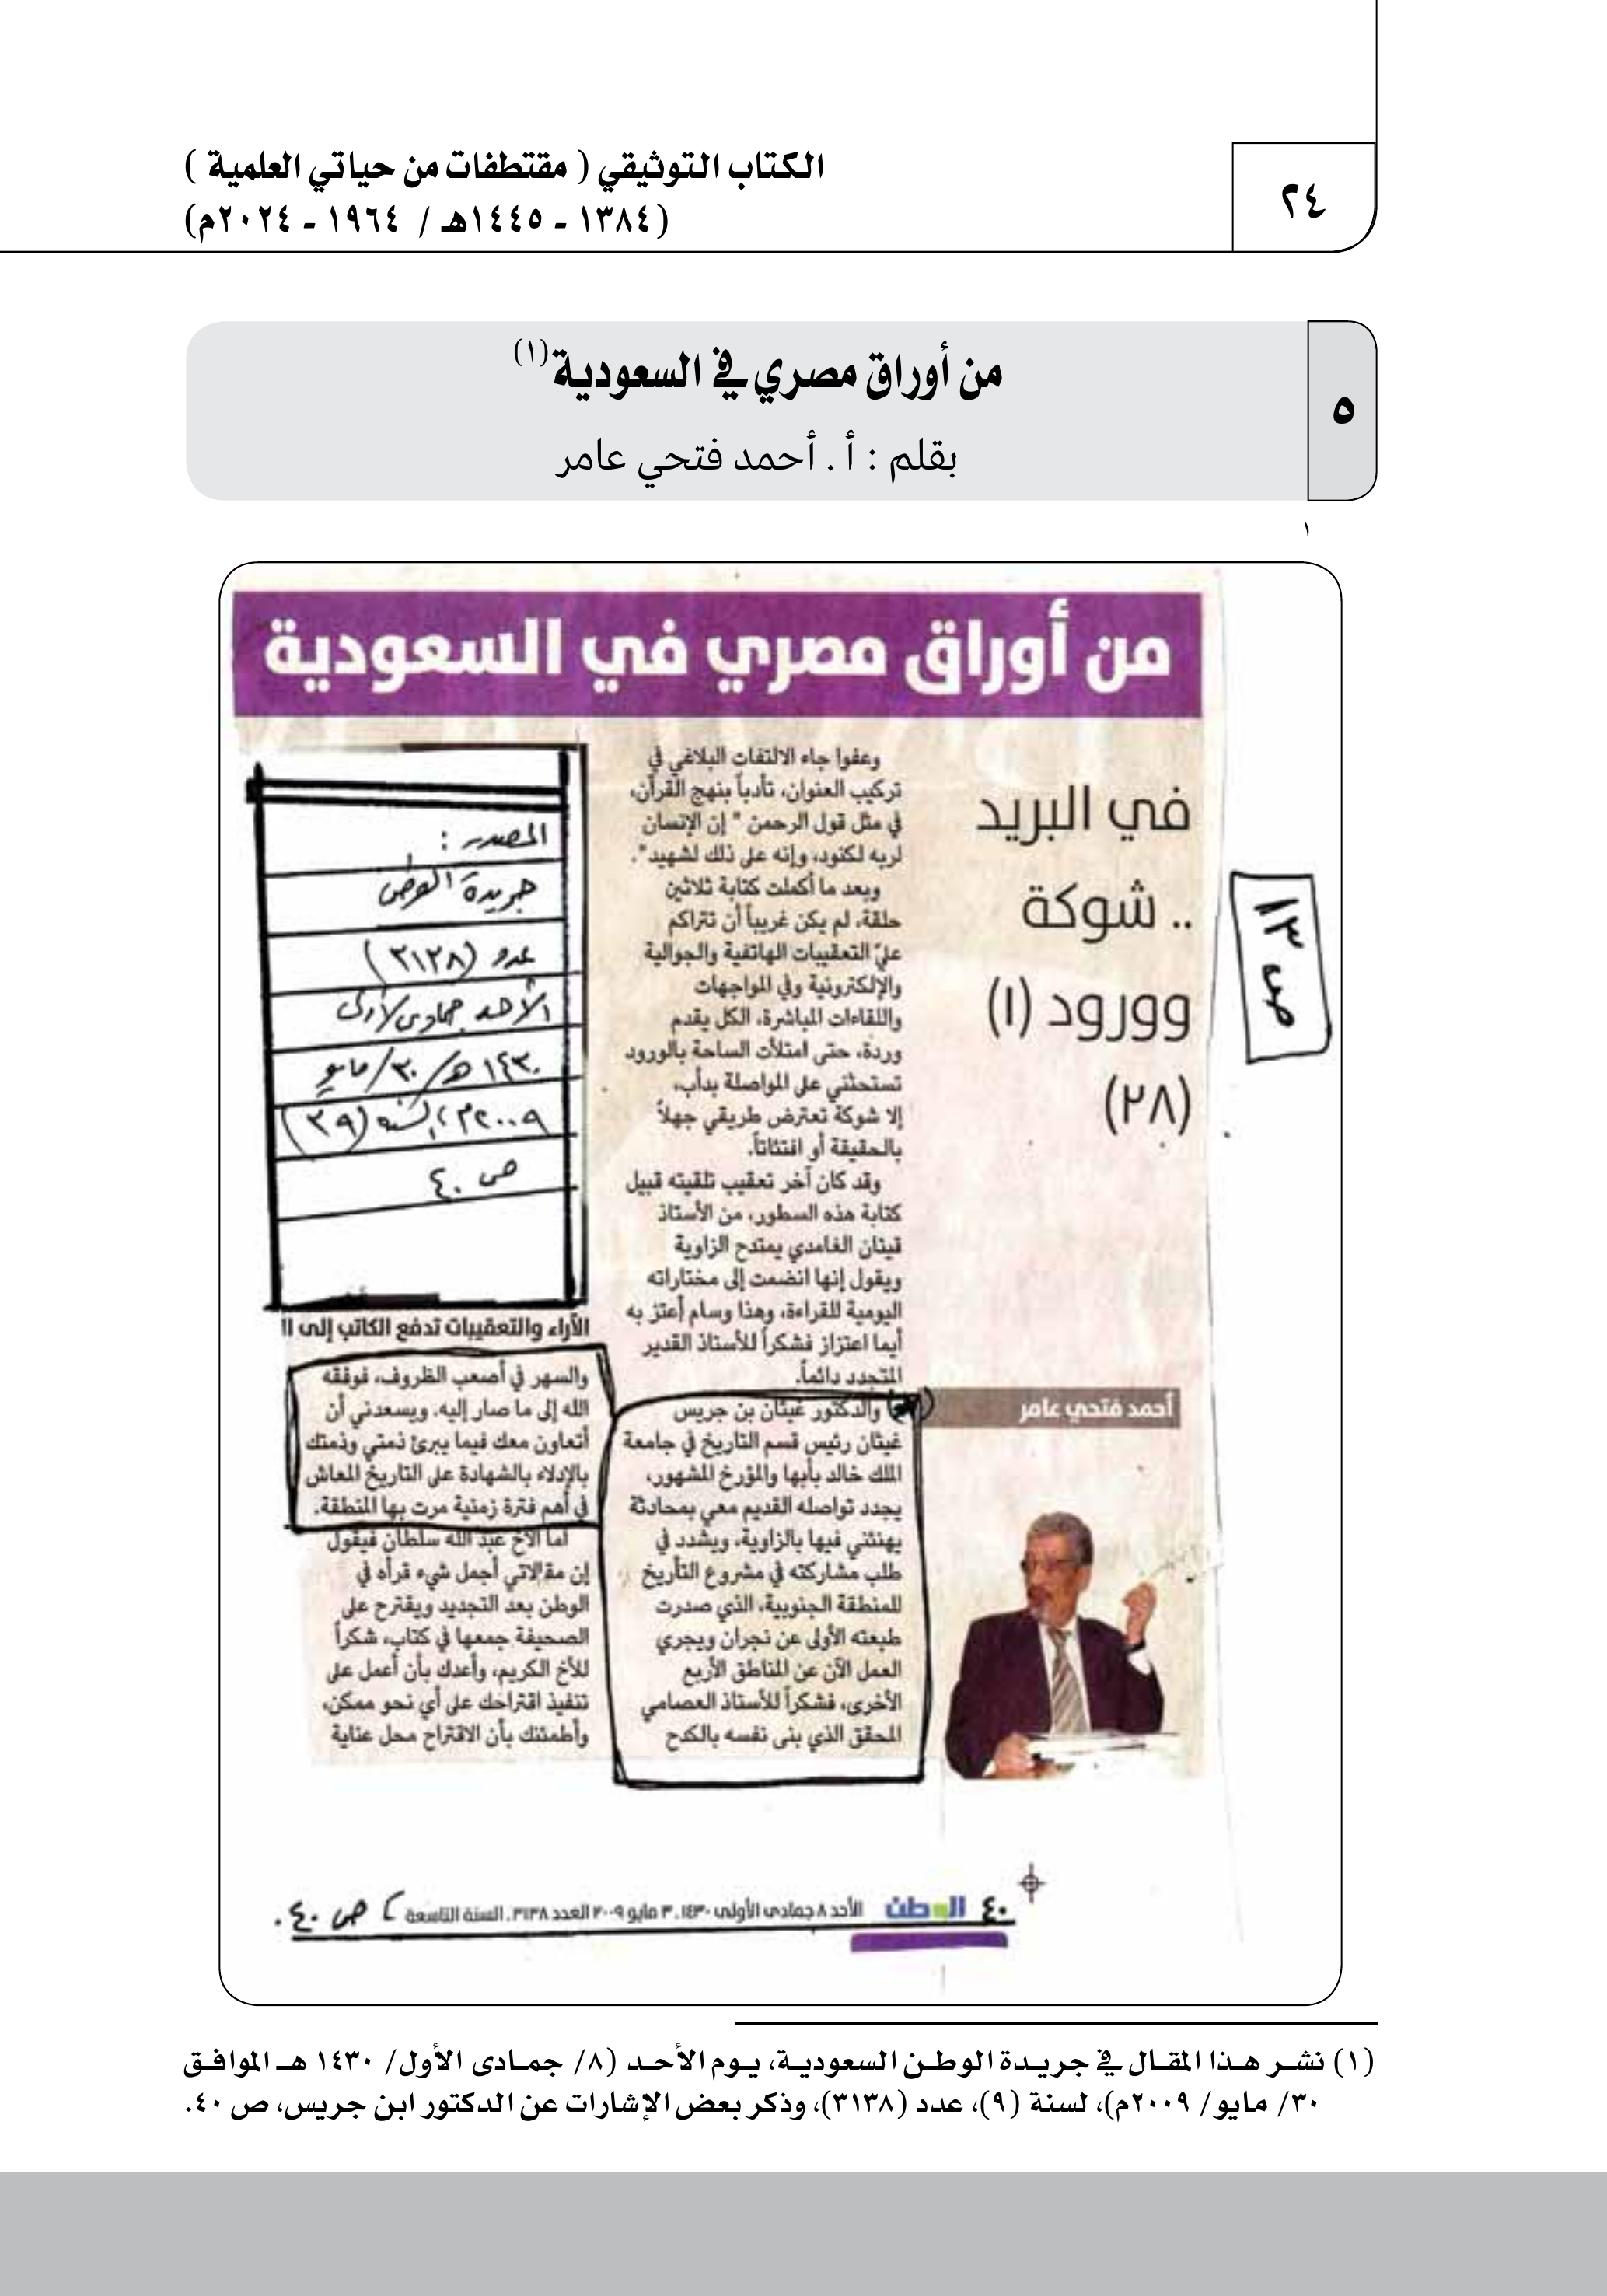 الكتاب التوثيقي ( مقتطفات من حياتي العلمية )
(١٣٨٤ - ١٤٤٥هـ / ١٩٦٤ - ٢٠٢٤م)
٢٤
٥
من أوراق مصري في السعودية (١)
بقلم : أ . أحمد فتحي عامر
١
من أوراق مصري في السعودية
ص ١٣
في البريد
.. شوكة
وورود (١)
(٢٨)
أحمد فتحي عامر
وعفوا جاء الالتفات البلاغي في
تركيب العنوان، تأدباً بنهج القرآن،
في مثل قول الرحمن " إن الإنسان
لربه لكنود، وإنه على ذلك لشهيد".
وبعد ما أكملت كتابة ثلاثين
حلقة، لم يكن غريباً أن تتراكم
عليّ التعقيبات الهاتفية والجوالية
والإلكترونية وفي المواجهات
واللقاءات المباشرة، الكل يقدم
وردة، حتى امتلأت الساحة بالورود
تستحثني على المواصلة بدأب،
إلا شوكة تعترض طريقي جهلاً
بالحقيقة أو افتئاتاً.
وقد كان آخر تعقيب تلقيته قبيل
كتابة هذه السطور، من الأستاذ
قينان الغامدي يمتدح الزاوية
ويقول إنها انضمت إلى مختاراته
اليومية للقراءة، وهذا وسام أعتز به
أيما اعتزاز فشكراً للأستاذ القدير
المتجدد دائماً.
والدكتور غيثان بن جريس
غيثان رئيس قسم التاريخ في جامعة
الملك خالد بأبها والمؤرخ المشهور،
يجدد تواصله القديم معي بمحادثة
يهنئني فيها بالزاوية، ويشدد في
طلب مشاركته في مشروع التأريخ
للمنطقة الجنوبية، الذي صدرت
طبعته الأولى عن نجران ويجري
العمل الآن عن المناطق الأربع
الأخرى، فشكراً للأستاذ العصامي
المحقق الذي بنى نفسه بالكدح
المصدر :
جريدة الوطن
عدد (٣١٣٨)
الأحد جمادى الأولى
١٤٣٠هـ / ٣٠/ مايو
٢٠٠٩م ، السنة (٩)
ص ٤٠
الآراء والتعقيبات تدفع الكاتب إلى ا
والسهر في أصعب الظروف، فوفقه
الله إلى ما صار إليه. ويسعدني أن
أتعاون معك فيما يبرئ ذمتي وذمتك
بالإدلاء بالشهادة على التاريخ المعاش
في أهم فترة زمنية مرت بها المنطقة.
أما الأخ عبد الله سلطان فيقول
إن مقالاتي أجمل شيء قرأه في
الوطن بعد التجديد ويقترح على
الصحيفة جمعها في كتاب، شكراً
للأخ الكريم، وأعدك بأن أعمل على
تنفيذ اقتراحك على أي نحو ممكن،
وأطمئنك بأن الاقتراح محل عناية
٤٠ الوطن الأحد ٨ جمادى الأولى ١٤٣٠. ٣ مايو ٢٠٠٩ العدد ٣١٣٨. السنة التاسعة ص ٤٠.
(١) نشر هذا المقال في جريدة الوطن السعودية، يوم الأحد (٨/ جمادى الأول/ ١٤٣٠ هـ الموافق
٣٠/ مايو/ ٢٠٠٩م)، لسنة (٩)، عدد (٣١٣٨)، وذكر بعض الإشارات عن الدكتور ابن جريس، ص ٤٠.